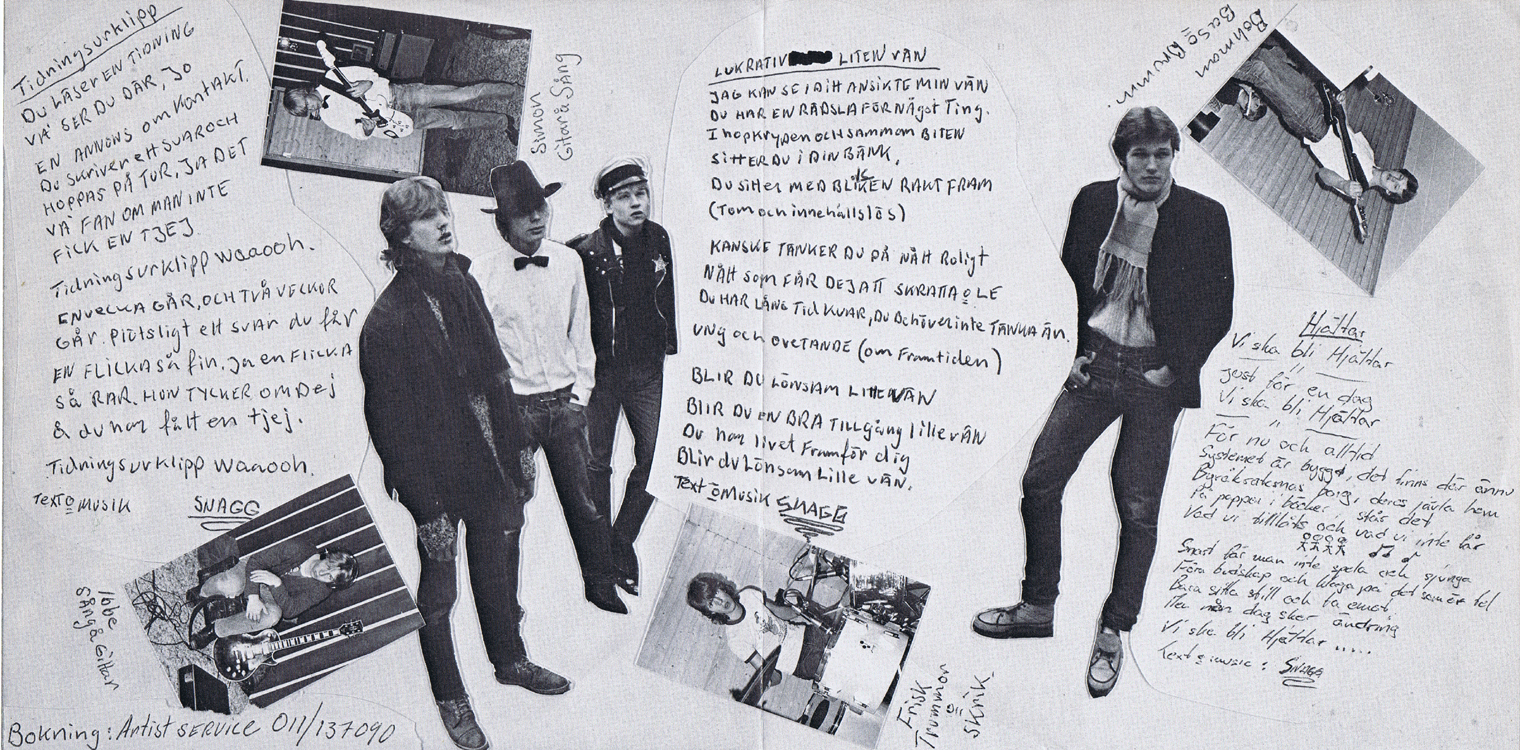 Tidningsurklipp
DU LÄSER EN TIDNING
VA' SER DU DÄR, JO
EN ANNONS om KONTAKT.
DU skriver ett SVAR OCH
HOPPAS PÅ TUR, JA DET
VA' FAN OM MAN INTE
FICK EN TJEJ.
Tidningsurklipp waaooh.
EN VECKA GÅR, OCH TVÅ VECKOR
GÅR. Plötsligt ett svar du får
EN FLICKA SÅ fin, Ja en FLICKA
SÅ RAR. HON TYCKER OM DEJ
& du har fått en tjej.
Tidningsurklipp waaooh.
TEXT O MUSIK SNAGG
Simon
Gitar å Sång
Ibbe
Sång å Gittar
Bokning: Artist SERVICE 011/137090
LUKRATIV LITEN VÄN
JAG KAN SE I DITT ANSIKTE MIN VÄN
DU HAR EN RÄDSLA FÖR NÅGOT TING.
IHOPKRYPEN OCH SAMMAN BITEN
SITTER DU I DIN BÄNK.
DU sitter MED BLICKEN RAKT FRAM
(Tom och innehållslös)
KANSKE TÄNKER DU PÅ NÅTT Roligt
NÅTT som FÅR DEJ ATT SKRATTA O LE
DU HAR LÅNG TID KVAR, DU BEHÖVER INTE TÄNKA ÄN.
UNG och OVETANDE (om Framtiden)
BLIR DU LÖNSAM LITTEN VÄN
BLIR DU EN BRA TILLGÅNG lille VÄN
DU har livet Framför dig
BLIR du LÖNSAM LILLE VÄN.
Text O MUSIK SNAGG
Frisk
Trummor
Skrik
Bohman
Bas o Brumm.
Hjältar
Vi ska bli Hjältar
" —
just för en dag
Vi ska bli Hjältar
— " —
För nu och alltid
Systemet är byggt, det finns där ännu
Byråkraternas borg, deras jävla hem
På papper i böcker, står det
Vad vi tillåts och vad vi inte får
Snart får man inte spela och sjunga
Föra budskap och klaga på det som är fel
Bara sitta still och ta emot
Men nån dag sker ändring
Vi ska bli Hjältar .....
Text o music: SNAGG